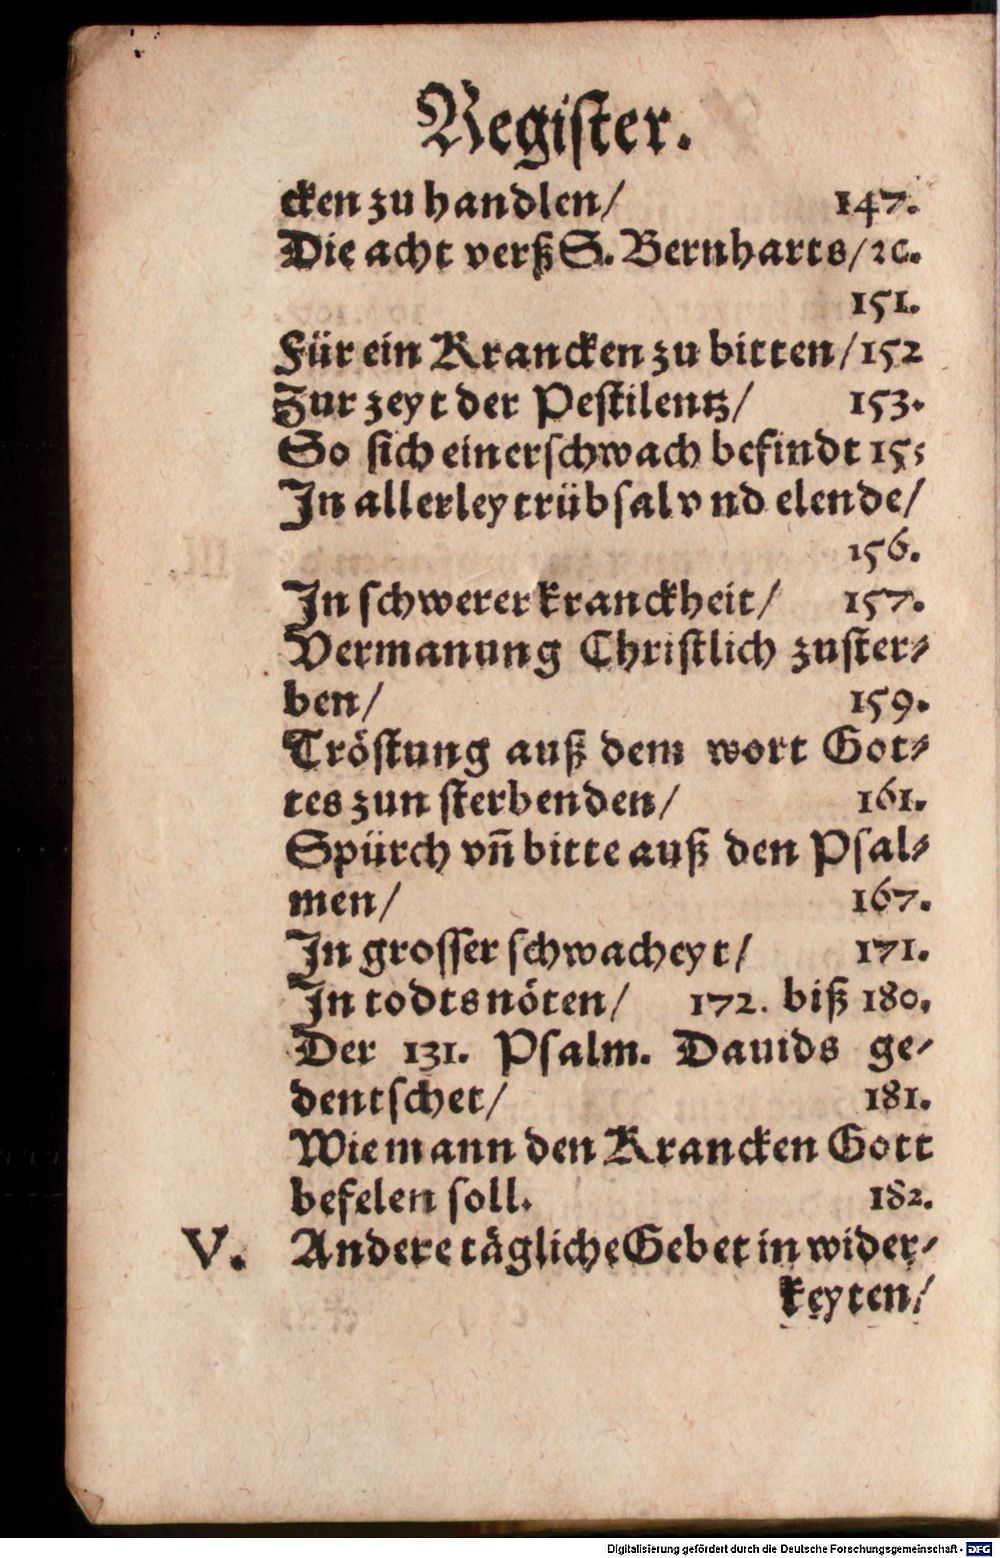 Register.
cken zu handlen/ 147.
Die acht verß S. Bernharts/ ꝛc.
151.
Für ein Krancken zu bitten/ 152
Zur zeyt der Pestilentz/ 153.
So sich einer schwach befindt 155
In allerley trübsal vnd elende/
156.
In schwerer kranckheit/ 157.
Vermanung Christlich zuster⸗
ben/ 159.
Tröstung auß dem wort Got⸗
tes zun sterbenden/ 161.
Spürch vñ bitte auß den Psal⸗
men/ 167.
In grosser schwacheyt/ 171.
In todtsnöten/ 172. biß 180.
Der 131. Psalm. Dauids ge⸗
dentschet/ 181.
Wie mann den Krancken Gott
befelen soll. 182.
V. Andere tägliche Gebet in wider⸗
keyten/
Digitalisierung gefördert durch die Deutsche Forschungsgemeinschaft - DFG